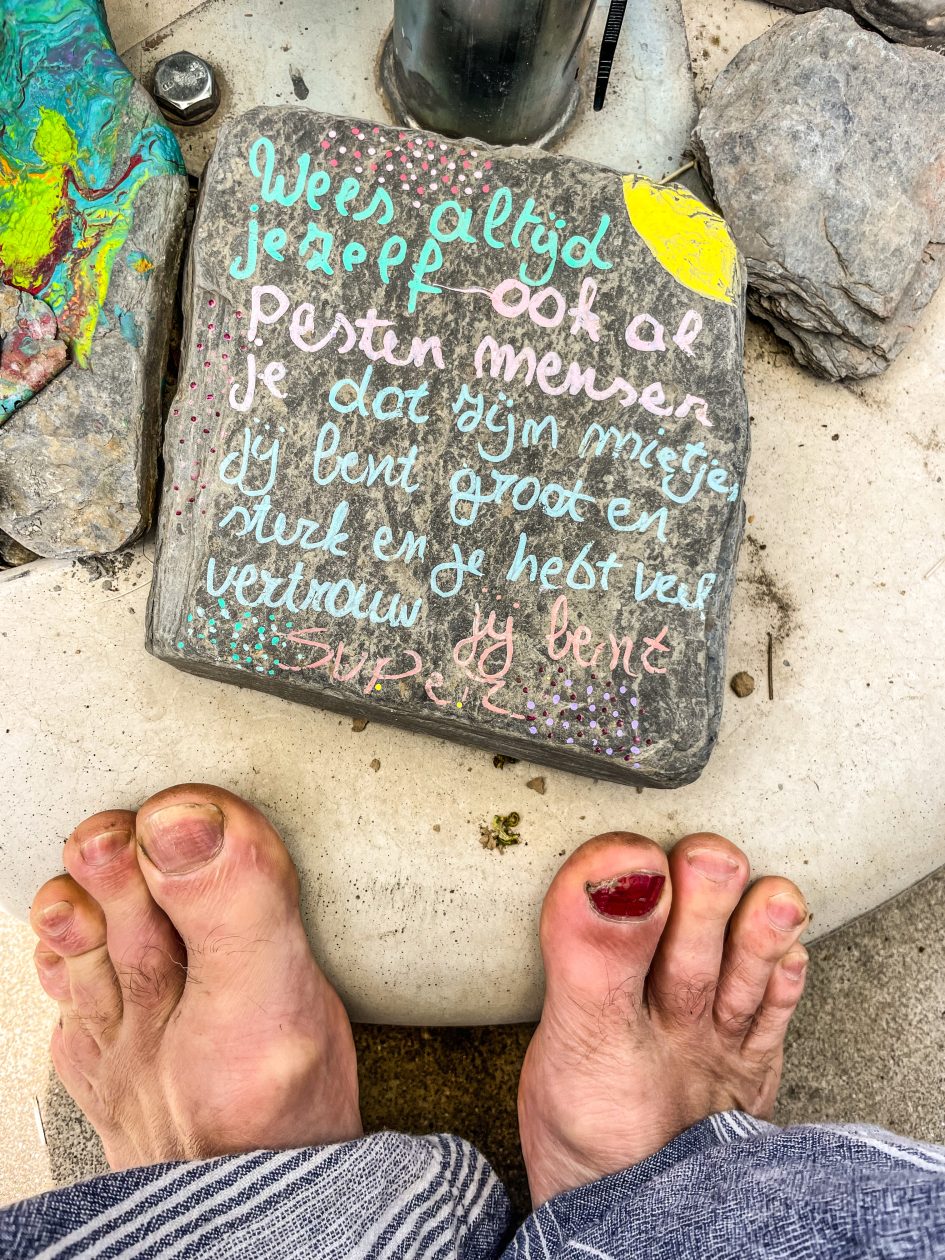 Wees altijd
jezelf - ook al
pesten mensen
je dat zijn mietjes
Jij bent groot en
sterk en je hebt veel
vertrouw jij bent
super